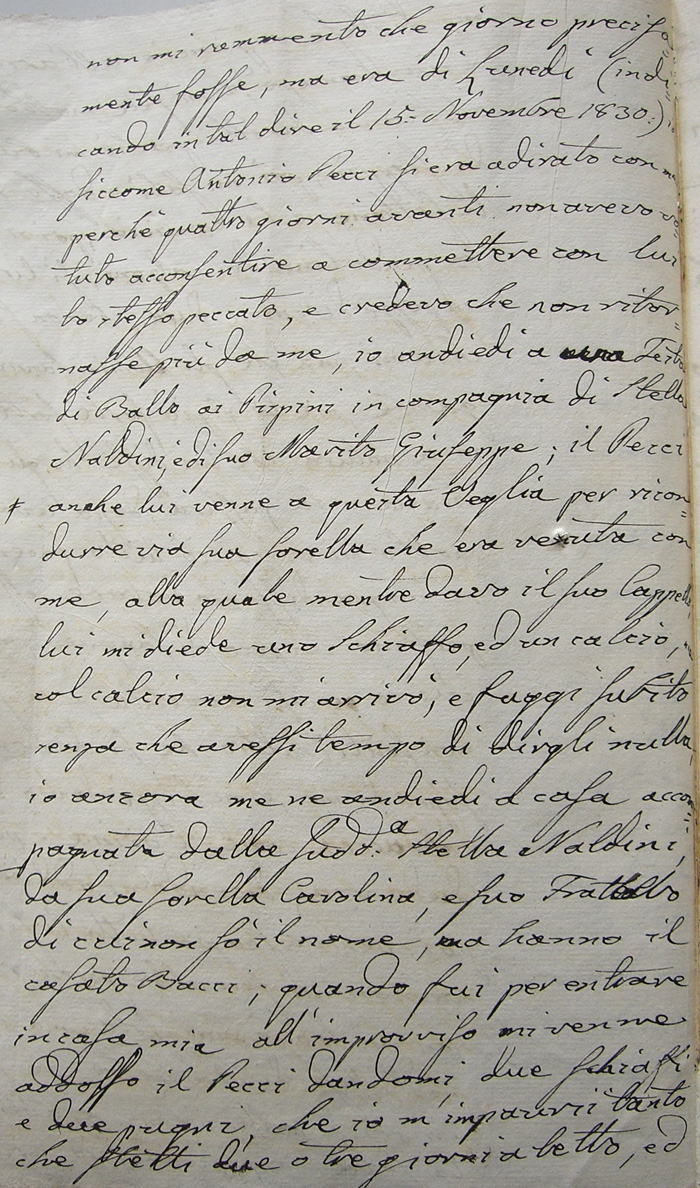 non mi rammento che giorno preciso=
mente fosse, ma era di Lunedì (indi=
cando in tal dire il 15. Novembre 1830.)
siccome Antonio Pecci si era adirato con me
perchè quattro giorni avanti non avevo vo=
luto acconsentire a commettere con lui
lo stesso peccato, e credevo che non ritor=
nasse più da me, io andiedi a una Festa
di Ballo ai Pispini in compagnia di Stella
Naldini, e di suo Marito Giuseppe; il Pecci
anche lui venne a questa Veglia per ricon=
durre via sua sorella che era venuta con
me, alla quale mentre davo il suo Cappello,
lui mi diede uno Schiaffo, ed un calcio,
col calcio non mi arrivò, e fuggì subito
senza che avessi tempo di dirgli nulla,
io ancora me ne andiedi a casa accom=
pagnata dalla Sudd.a Stella Naldini,
da sua sorella Carolina, e suo Fratello
di cui non sò il nome, ma hanno il
casato Bacci; quando fui per entrare
in casa mia all'improvviso mi venne
addosso il Pecci dandomi due schiaffi
e due pugni, che io m'impaurii tanto
che stetti due o tre giorni a letto, ed